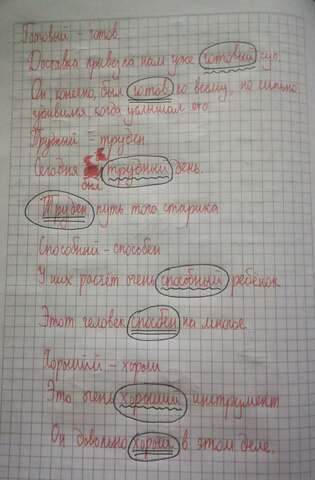 Готовый - готов.
Доставка привезла нам уже готовый суп.
Он, конечно, был готов ко всему, но сильно
удивился, когда услышал это
Трудный - труден
Сегодня был трудный день.
Труден путь того старика
Способный - способен
У них растёт очень способный ребёнок
Этот человек способен на многое
Хороший - хорош
Это очень хороший инструмент
Он довольно хорош в этом деле.